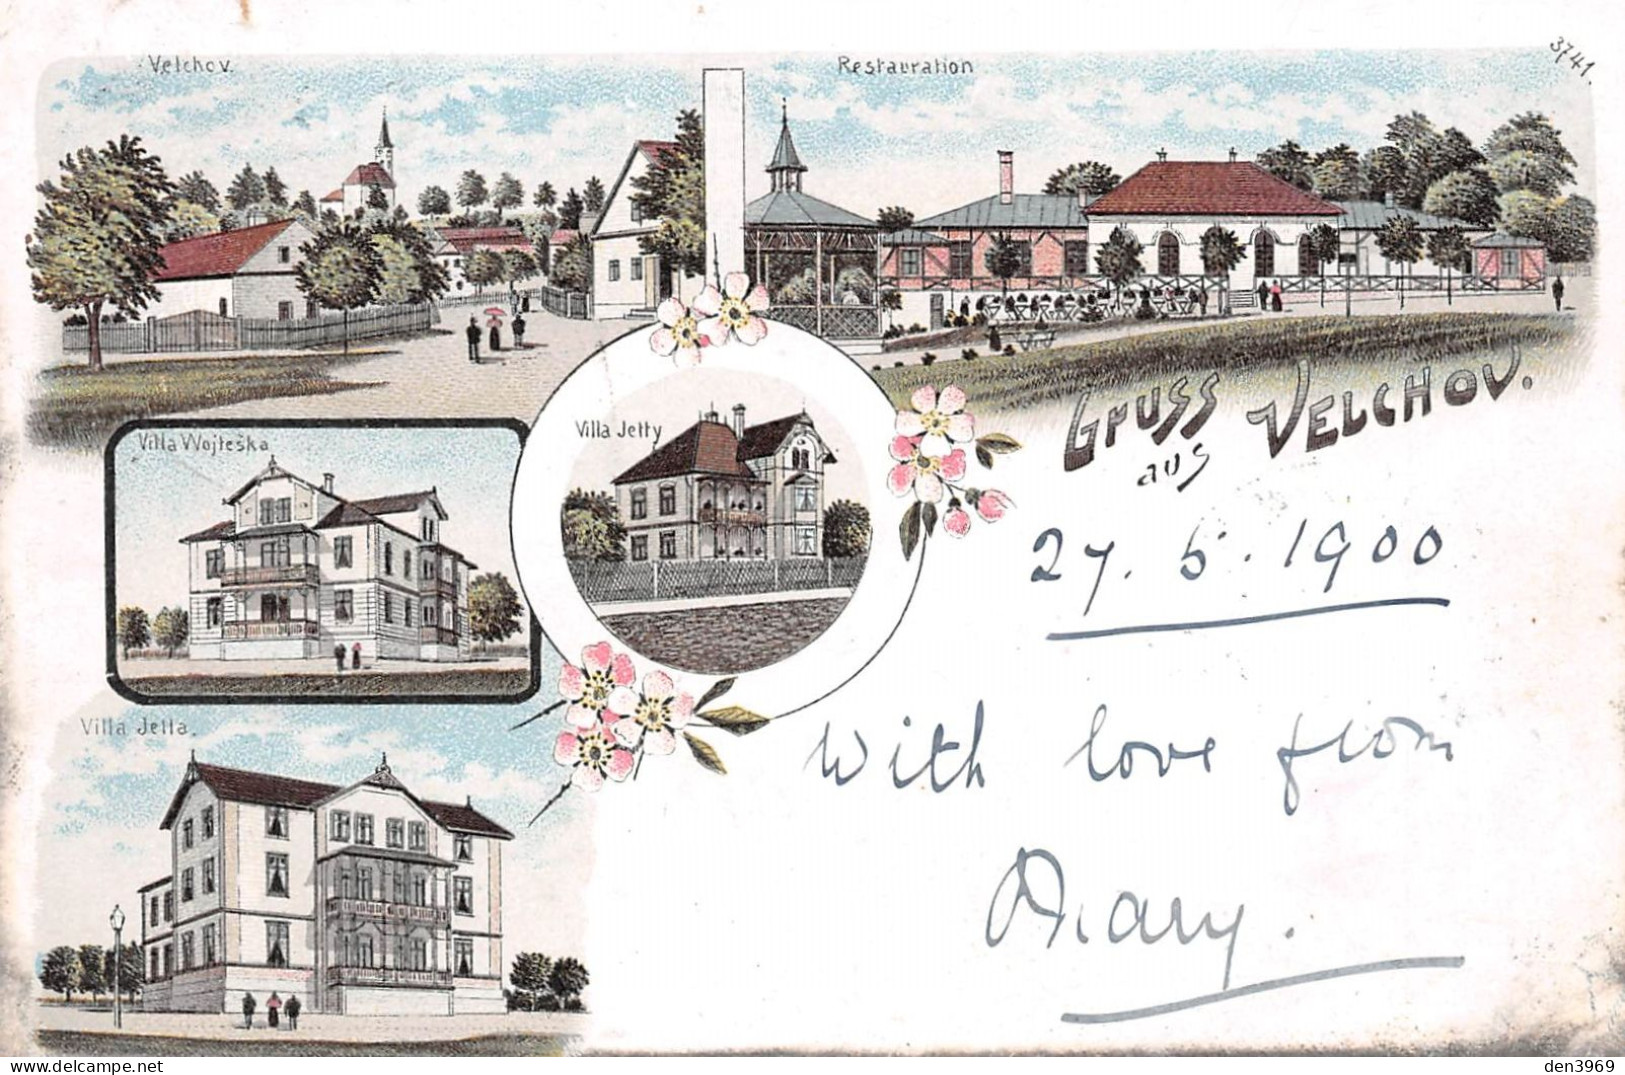 Velchov.
Restauration
3741.
Villa Wojteška
Villa Jetty
Gruss
aus
VELCHOV.
27. 5. 1900
With love from
Mary.
Villa Jetta.
den3969